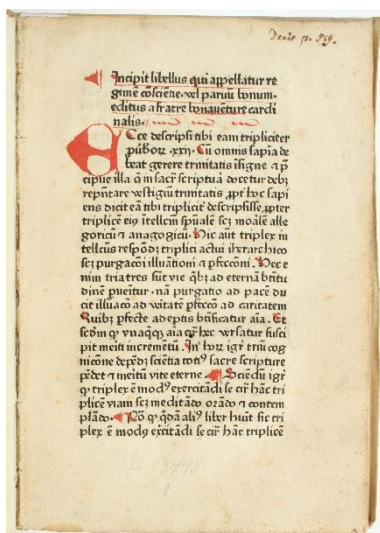 Denis p. 569.
Incipit libellus qui appellatur re
gimē cōsciēntie. vel paruū bonum.
editus a fratre bonauenture cardi
nalis.
Ecce descripsi tibi eam tripliciter
puerbioꝝ .xxij. Cū omnis sapīa de
beat gerere trinitatis īsigne ⁊ p̄
cipue illa q̄ in sacr̄ scriptura docetur debꝫ
rep̄ntare vestigiū trinitatis ꝓpt̄ hoc sapi
ens dicit eā tibi triplicit̄ descripsisse ꝓpter
triplicē eiꝰ ītellcm̄ spūalē scꝫ moralē alle
goricū ⁊ anagogicū. Hic aūt triplex in
tellcūs respōdꝫ triplici actui iherarchico
scꝫ purgacōi illuīationi ⁊ ꝑfeccōni. Hec e
nim tria tres sūt vie qͥbꝫ ad eternā btītu
dinē ꝑuentur. nā purgatio ad pacē du
cit illuīaco ad vitatē ꝑfeccō ad caritatem
Quibꝫ ꝑfecte adeptis btīficatur aīa. Et
scdm̄ qͥ vnaqͣqꝫ aīa cir̄ hec v̄satur susci
pit meriti incremētū. In hoꝝ igr̄ triū cog
nicōne depēdꝫ sciētia totiꝰ sacre scripture
pēdet ⁊ meritū vite eterne. Sciendū igr̄
ꝙ triplex ē modꝰ exercitādi se cir̄ hāc tri
plicē viam scꝫ meditādo orādo ⁊ contem
plādo. Nō ꝙ qͥdā aliꝰ libet huīt sic tri
plex ē modꝰ exc̄itādi se cir̄ hāc triplicē